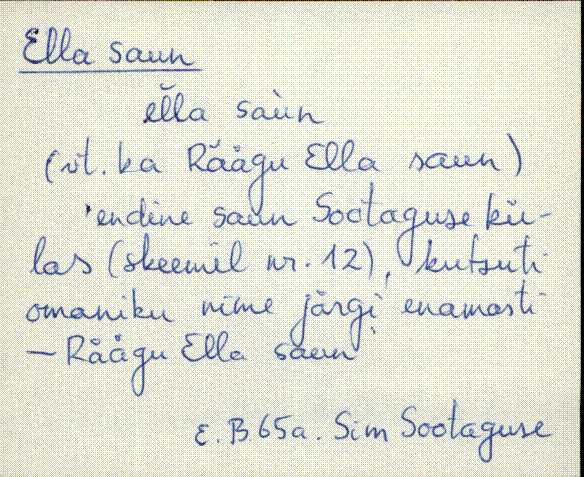 Ella saun
el̆la saùn
(vt. ka Räägu Ella saun)
'endine saun Sootaguse kü-
las (skeemil nr. 12), kutsuti
omaniku nime järgi enamasti
– Räägu Ella saun'
E. B 65a. Sim Sootaguse